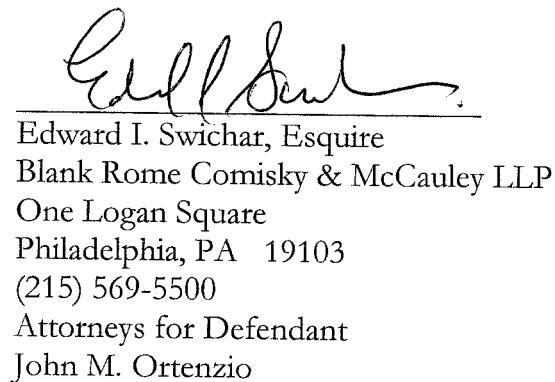 Edward I. Swichar, Esquire
Blank Rome Comisky & McCauley LLP
One Logan Square
Philadelphia, PA 19103
(215) 569-5500
Attorneys for Defendant
John M. Ortenzio